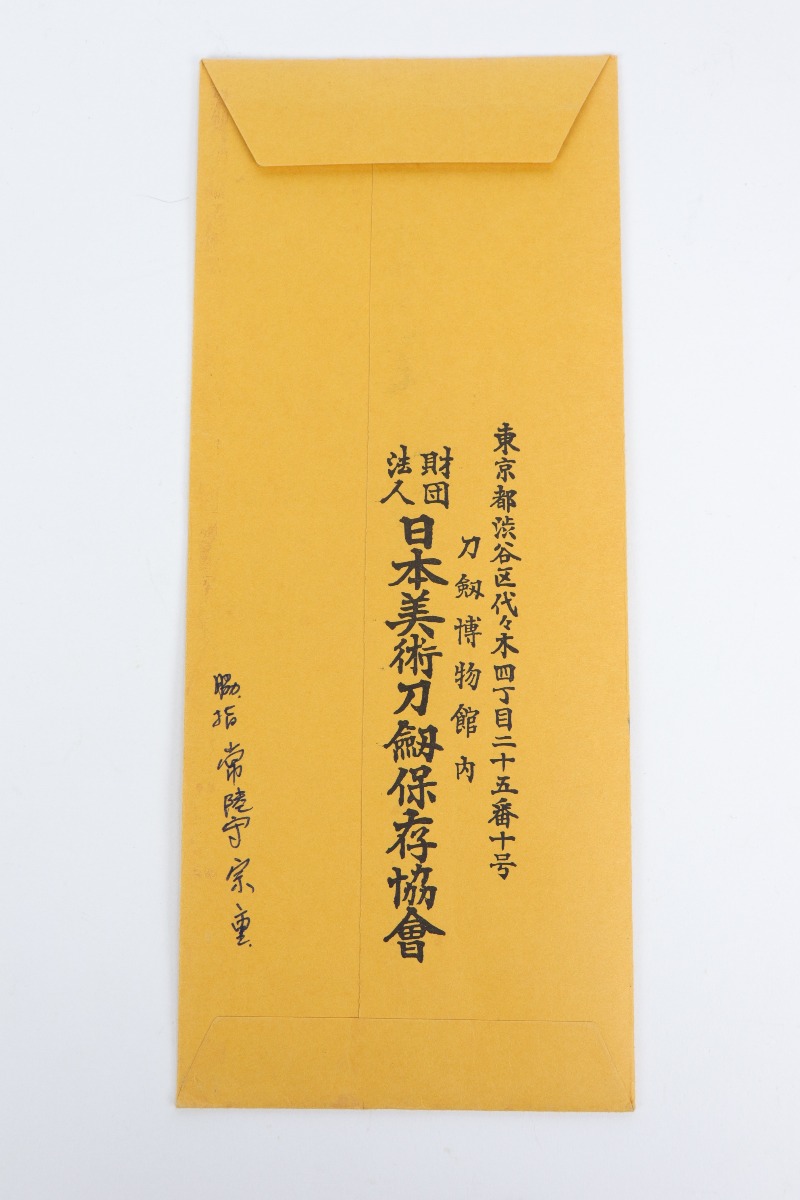 東京都渋谷区代々木四丁目二十五番十号
刀劔博物館内
財団
法人
日本美術刀劔保存協會
脇指 常陸守宗重